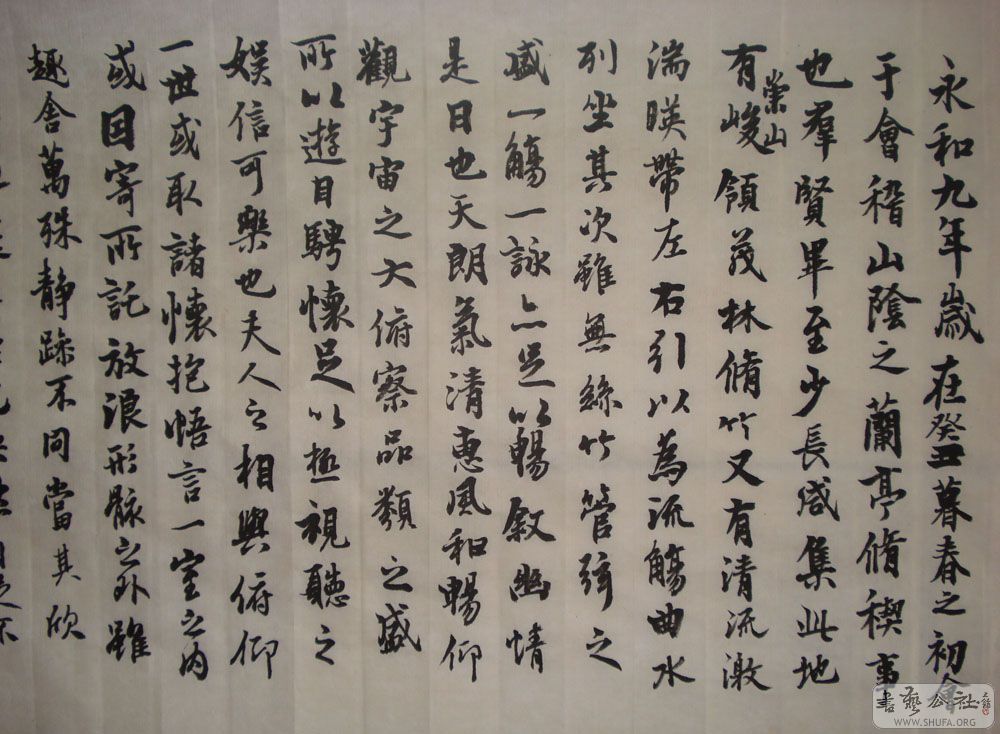 永和九年歲在癸丑暮春之初會
于會稽山陰之蘭亭脩稧事
也羣賢畢至少長咸集此地
有崇山峻領茂林脩竹又有清流激
湍暎帶左右引以為流觴曲水
列坐其次雖無絲竹管弦之
盛一觴一詠亦足以暢敘幽情
是日也天朗氣清惠風和暢仰
觀宇宙之大俯察品類之盛
所以遊目騁懷足以極視聽之
娛信可樂也夫人之相與俯仰
一世或取諸懷抱悟言一室之內
或因寄所託放浪形骸之外雖
趣舍萬殊静躁不同當其欣
書藝公社
WWW.SHUFA.ORG